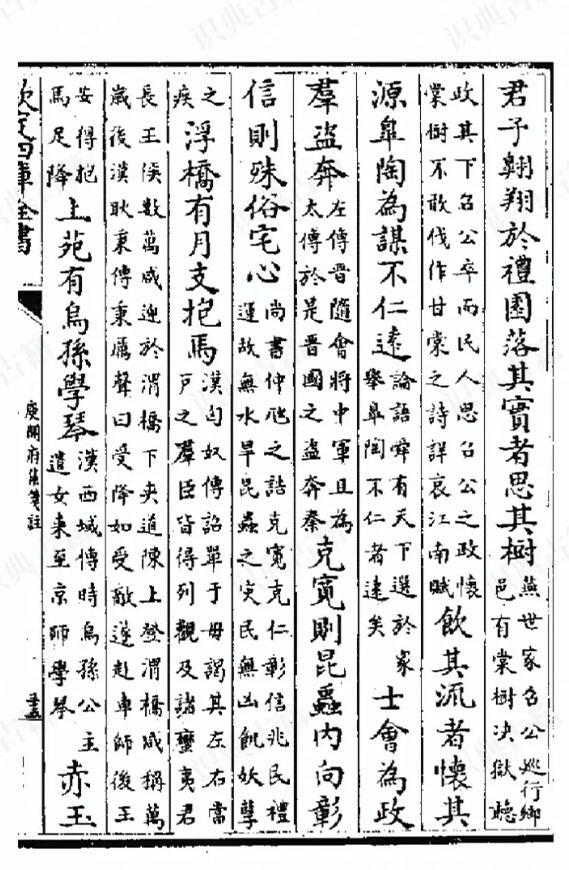 君子翺翔於禮園落其實者思其樹燕世家召公巡行鄉
邑有棠樹決獄聽
政其下召公卒而民人思召公之政懷
棠樹不敢伐作甘棠之詩詳哀江南賦飲其流者懷其
源臯陶為謀不仁逺論語舜有天下選於衆
舉臯陶不仁者逺矣士會為政
羣盜奔左傳晉隨會將中軍且為
太傅於是晉國之盜奔秦克寛則昆蟲内向彰
信則殊俗宅心尚書仲虺之誥克寛克仁彰信兆民禮
運故無水旱昆蟲之灾民無凶飢妖孽
之
疾浮橋有月支抱馬漢匈奴傳詔單于毋謁其左右當
戸之羣臣皆得列觀及諸蠻夷君
長王侯數萬咸迎於渭橋下夾道陳上登渭橋咸稱萬
歳後漢耿秉傳秉厲聲曰受降如受敵遂赴車師後王
安得抱
馬足降上苑有烏孫學琴漢西域傳時烏孫公主
遣女来至京師學琴赤玉
欽定四庫全書
庾開府集箋註